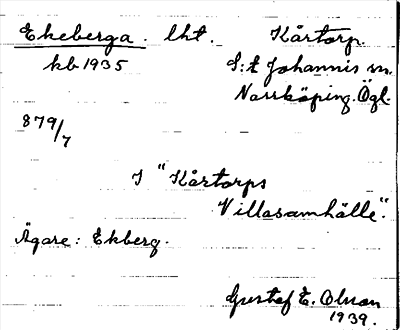 Ekeberga. lht. Kårtorp.
kb 1935 S:t Johannis sn.
Norrköping. Ögl.
879/7
I "Kårtorps
Villasamhälle".
Ägare: Ekberg.
Gustaf E. Olsson
1939.